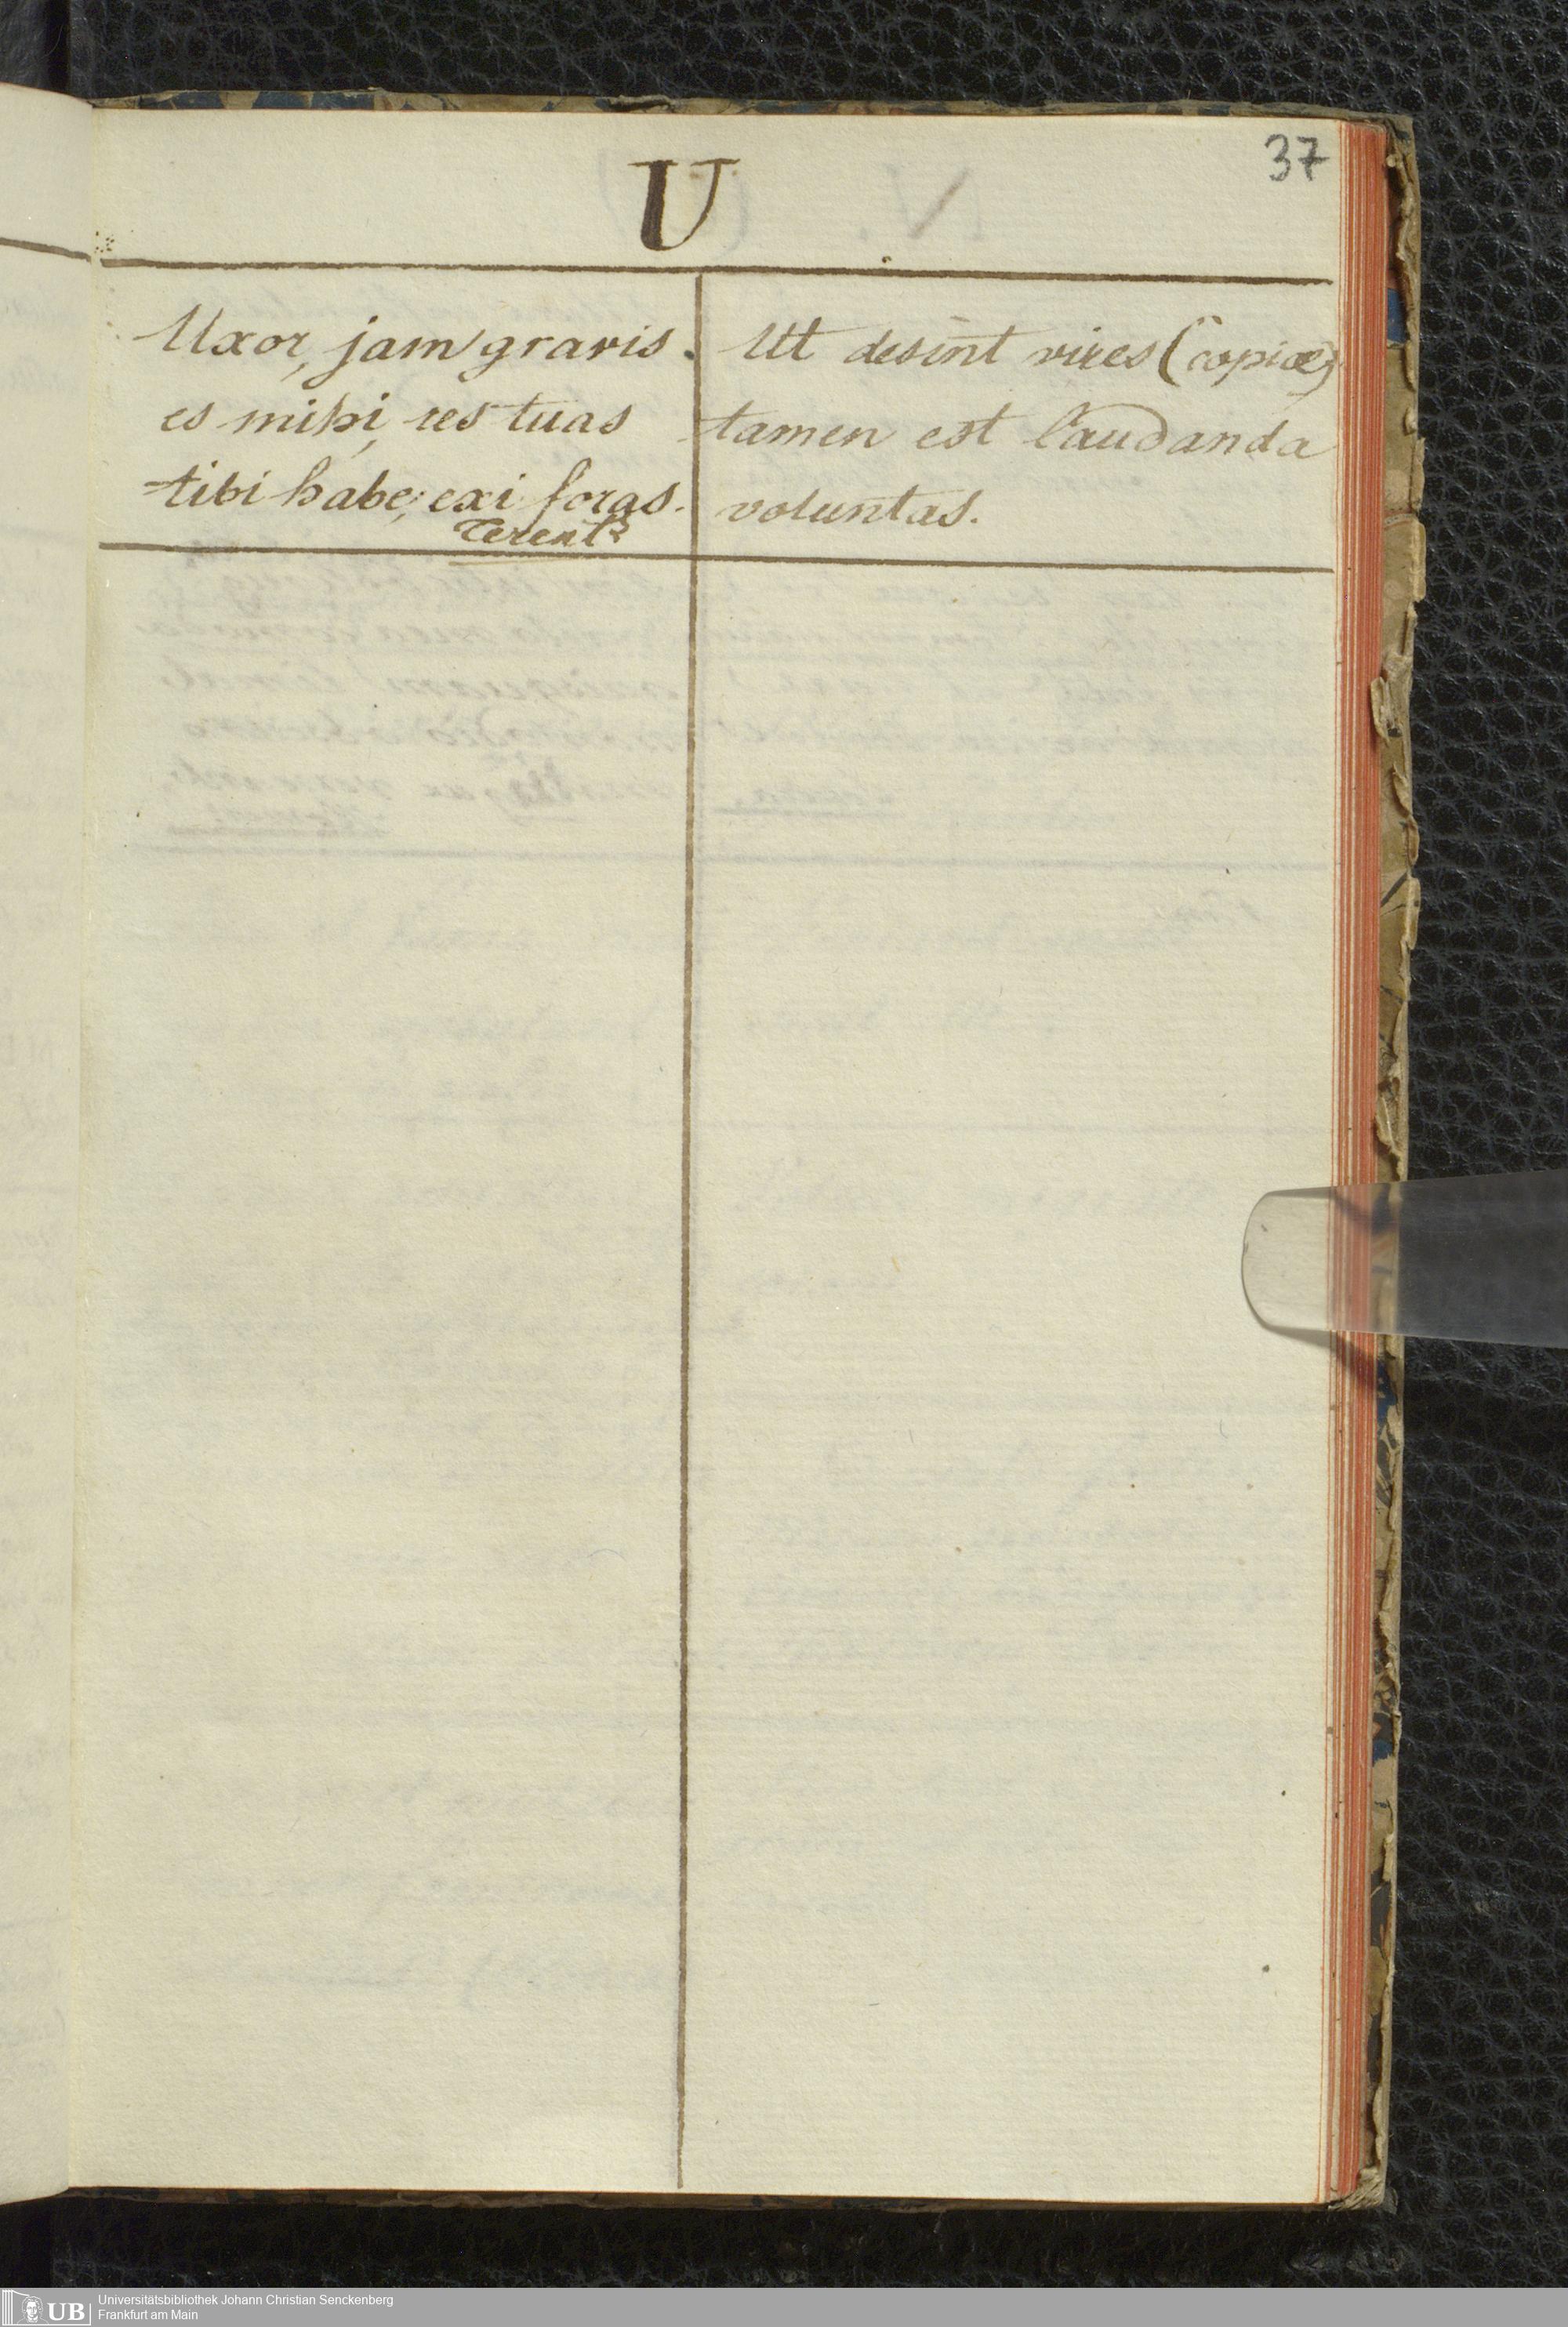 37
U
Uxor, jam gravis
es mihi, res tuas
tibi habe; exi foras.
Terent
Ut desint vires (copiæ)
tamen est laudanda
voluntas.
UB
Universitätsbibliothek Johann Christian Senckenberg
Frankfurt am Main